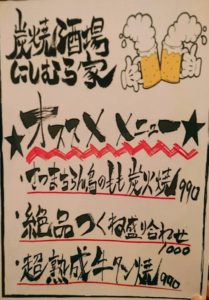 炭焼酒場
にしむら家
★オススメメニュー★
・さつま知らん鳥のもも炭火焼 990
・絶品つくね盛り合わせ 1000
・超熟成牛タン焼 990